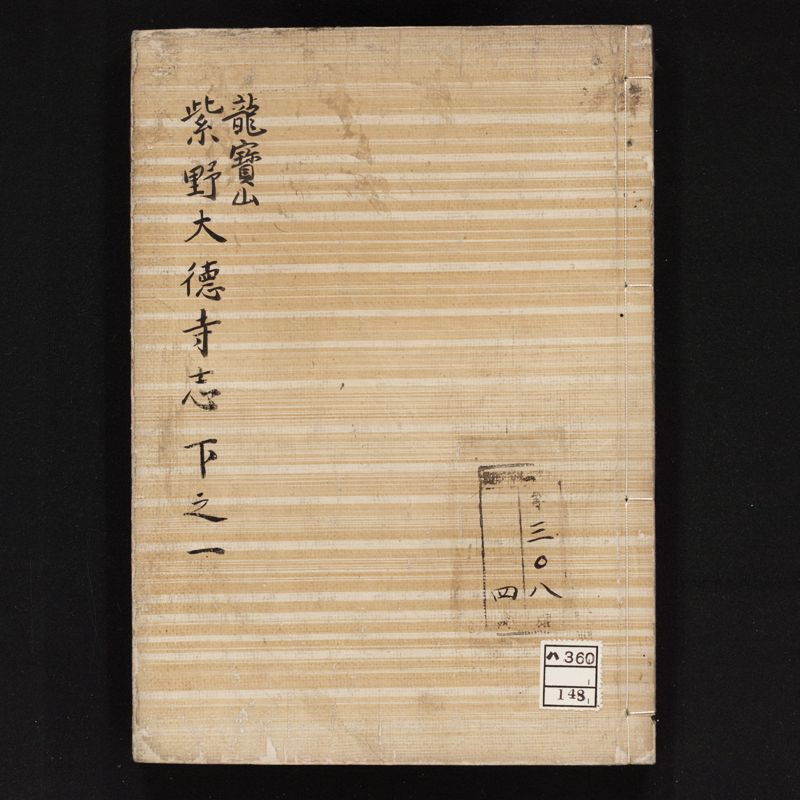 龍寶山
紫野大德寺志 下之一
三〇八
四
ハ 360
148